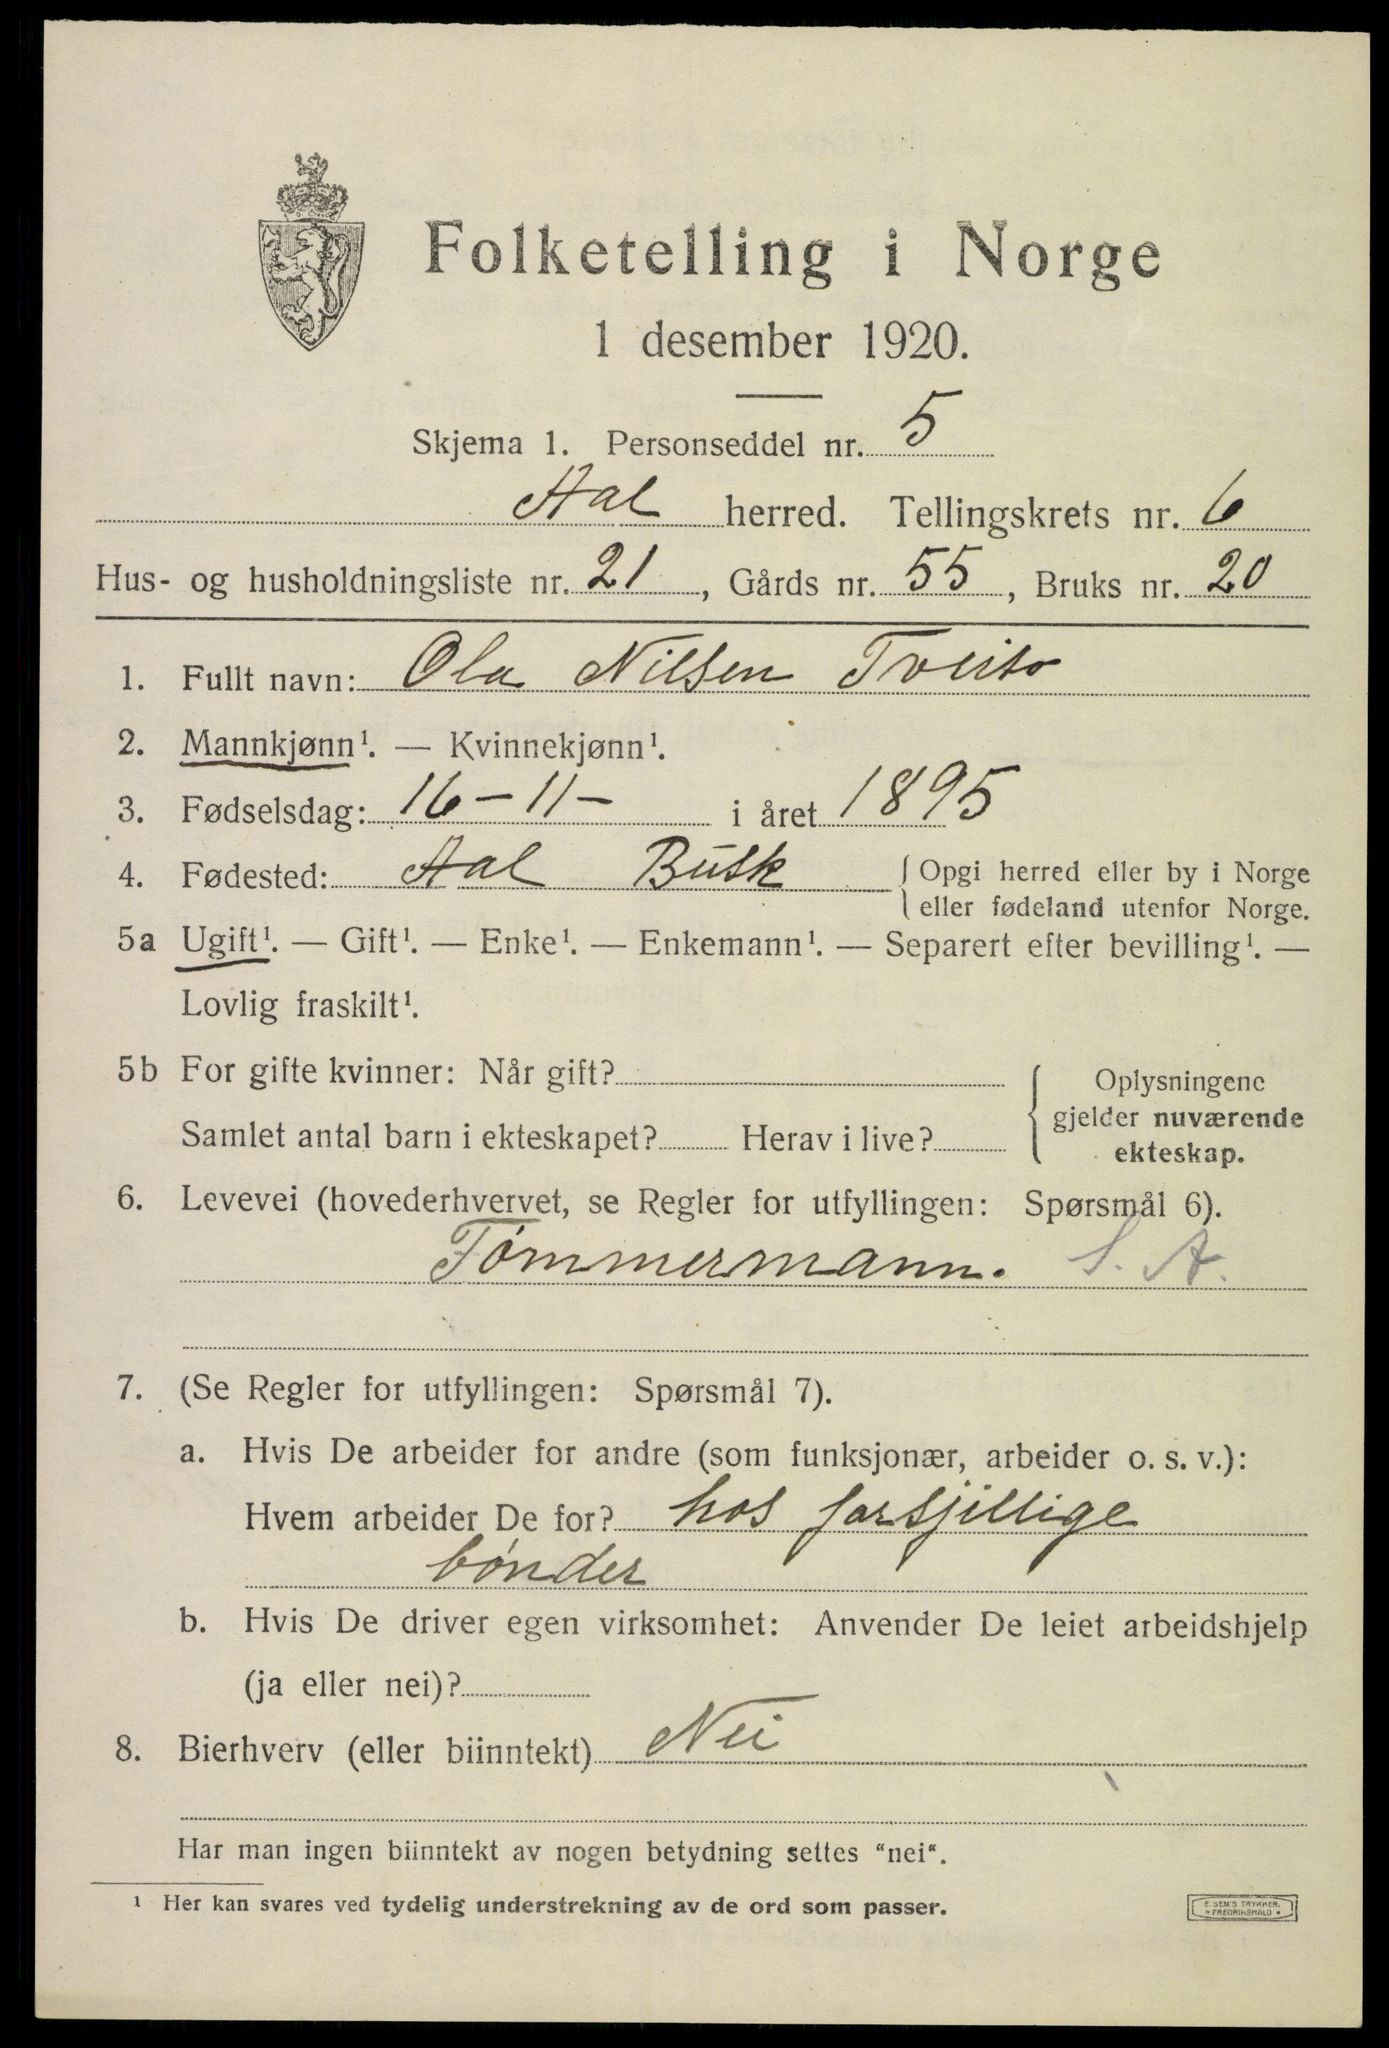 Folketelling i Norge
1 desember 1920.
Skjema 1. Personseddel nr. 5
Aal herred. Tellingskrets nr. 6
Hus- og husholdningsliste nr. 21, Gårds nr. 55, Bruks nr. 20
1. Fullt navn: Ola Nilsen Tveito
2. Mannkjønn¹. — Kvinnekjønn¹.
3. Fødselsdag: 16-11- i året 1895
4. Fødested: Aal Busk { Opgi herred eller by i Norge
eller fødeland utenfor Norge.
5a Ugift¹. — Gift¹. — Enke¹. — Enkemann¹. — Separert efter bevilling¹. —
Lovlig fraskilt¹.
5b For gifte kvinner: Når gift?
Samlet antal barn i ekteskapet? Herav i live?
Oplysningene
gjelder nuværende
ekteskap.
6. Levevei (hovederhvervet, se Regler for utfyllingen: Spørsmål 6).
Tømmermann. S. A.
7. (Se Regler for utfyllingen: Spørsmål 7).
a. Hvis De arbeider for andre (som funksjonær, arbeider o. s. v.):
Hvem arbeider De for? hos forsjillige
bønder
b. Hvis De driver egen virksomhet: Anvender De leiet arbeidshjelp
(ja eller nei)?
8. Bierhverv (eller biinntekt) Nei
Har man ingen biinntekt av nogen betydning settes "nei".
¹ Her kan svares ved tydelig understrekning av de ord som passer.
E. SEM'S TRYKKER.
* FREDRIKSHALD *